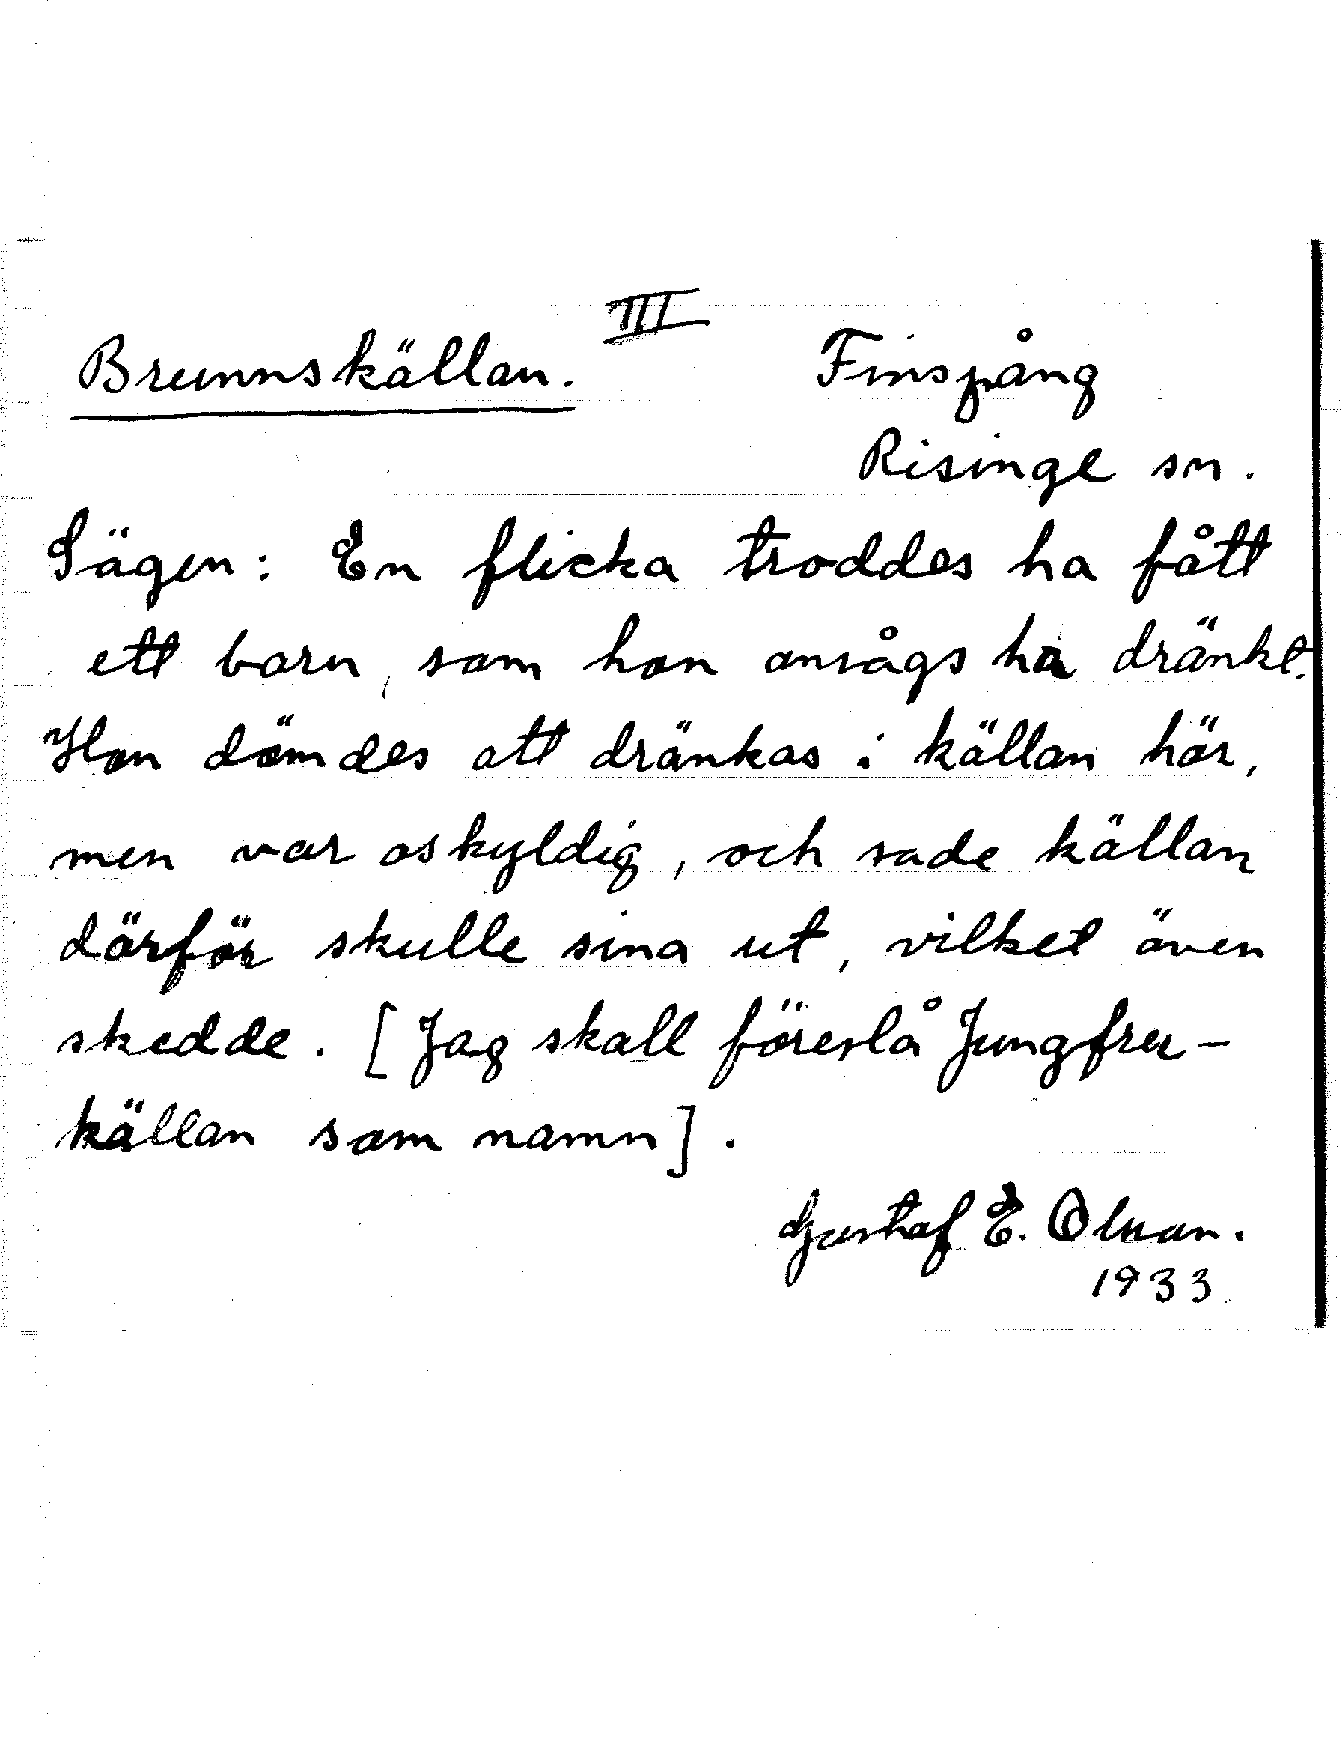 III
Brunnskällan. Finspång
Risinge sn.
Sägen: En flicka troddes ha fått
ett barn, som hon ansågs ha dränkt.
Hon dömdes att dränkas i källan här,
men var oskyldig, och sade källan
därför skulle sina ut, vilket även
skedde. [Jag skall föreslå Jungfru-
källan som namn].
Gustaf E. Olsson.
1933